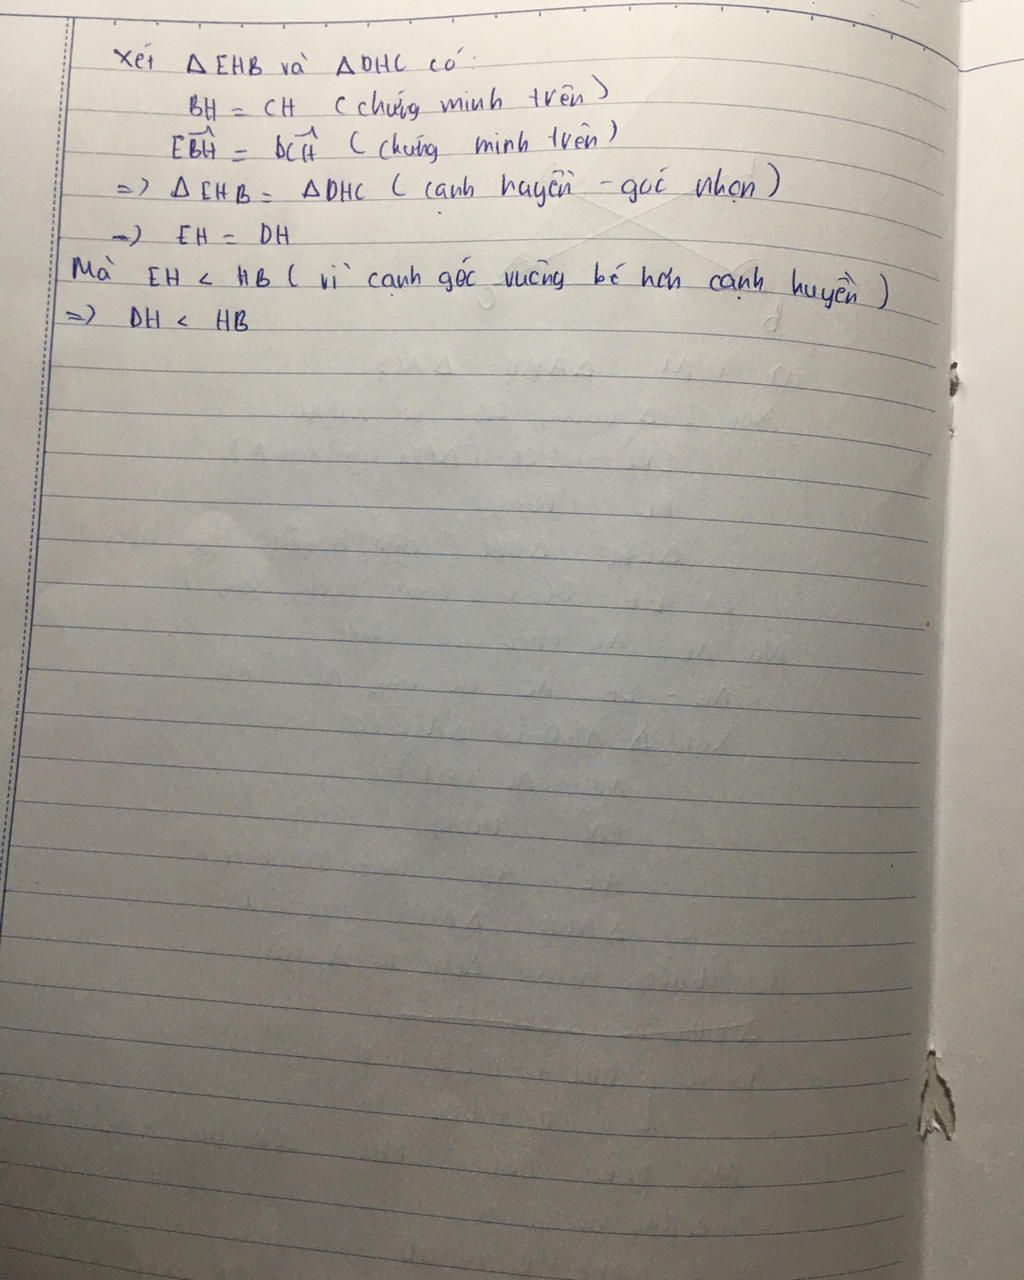 Xét Δ EHB và Δ DHC có:
BH = CH (chứng minh trên)
EBH = DCH (chứng minh trên)
=> Δ EHB = ΔDHC (cạnh huyền - góc nhọn)
=> EH = DH
Mà EH < HB (vì cạnh góc vuông bé hơn cạnh huyền)
=> DH < HB